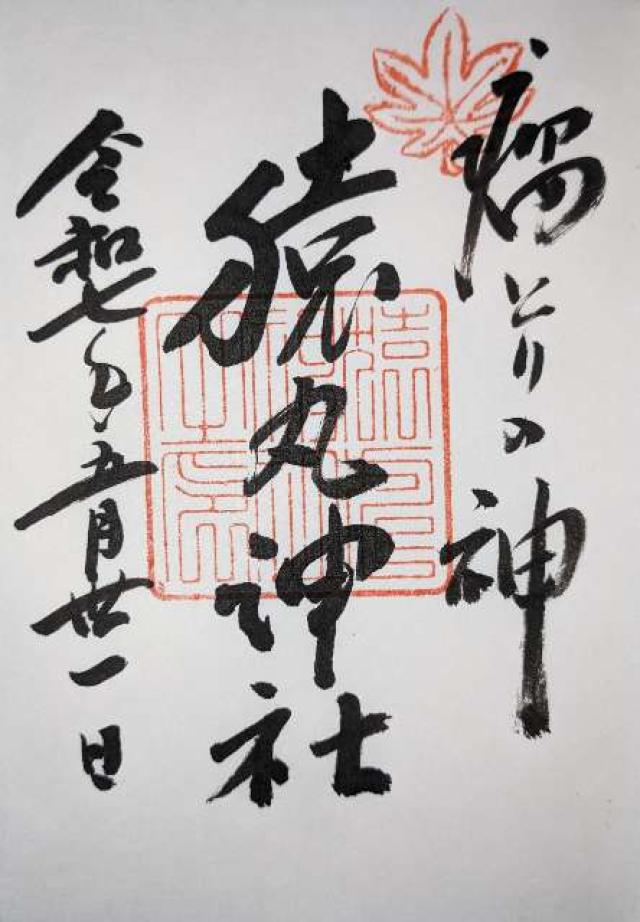 瘤とりの神
猿丸神社
令和七年五月廿一日